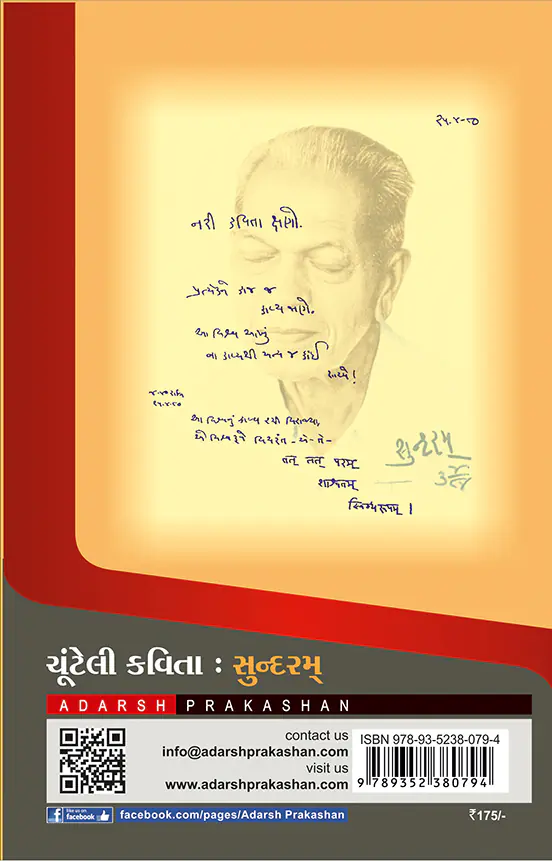 ૨૫.૪-૮૦
નરી કવિતા ક્ષણો.
પ્રત્યેકને કાજ જ
કાવ્ય ક્ષણે.
આ વિશ્વ આખું
ના કાવ્યથી અન્ય જ કાંઈ
સાચે!
૨૫.૪.૮૦
આ વિશ્વનું કાવ્ય રચી વિરાજ્યા,
એ વિશ્વરૂપે વિચરંત - એ - તે -
તત્ તત્ પરમ્
શાશ્વતમ્
સુન્દરમ્
ચૂંટેલી કવિતા : સુન્દરમ્
ADARSH PRAKASHAN
contact us
info@adarshprakashan.com
visit us
www.adarshprakashan.com
ISBN 978-93-5238-079-4
9 789352 380794
like us on
facebook
facebook.com/pages/Adarsh Prakashan
₹175/-